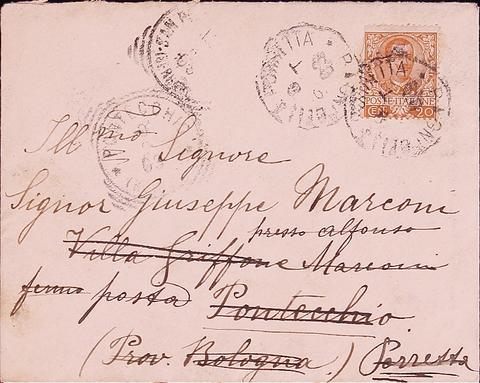 POSTE ITALIANE
CEN. 20
Ill mo Signore
Signor Giuseppe Marconi
presso Alfonso
Villa Griffone Marconi
fermo posta Pontecchio
(Prov. Bologna) Porretta